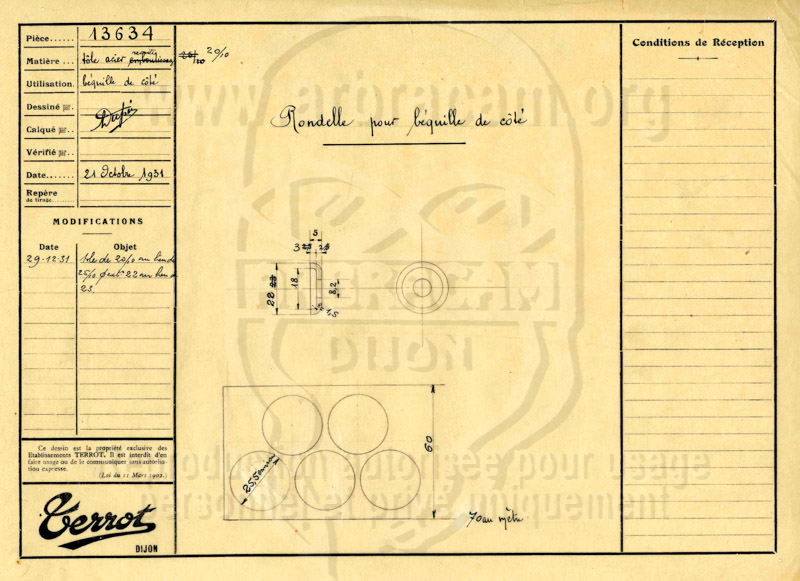 Pièce...... 13634
Matière ... tôle acier 20/10
Utilisation. béquille de côté
Dessiné par.
Calqué par..
Vérifié par..
Date....... 21 Octobre 1931
Repère
de tirage.
MODIFICATIONS
Date Objet
29.12.31 tôle de 20/10 au lieu de
25/10 22 au lieu de
23.
Ce dessin est la propriété exclusive des
Etablissements TERROT. Il est interdit d'en
faire usage ou de le communiquer sans autorisa-
tion expresse.
(Loi du 11 Mars 1902.)
Terrot
DIJON
Rondelle pour béquille de côté
5
3
22 23
18
8,2
1,5
25,5 environ
60
70 au mètre
Conditions de Réception
www.arbracam.org
ARBRACAM
DIJON
Reproduction autorisée pour usage
personnel et privé uniquement